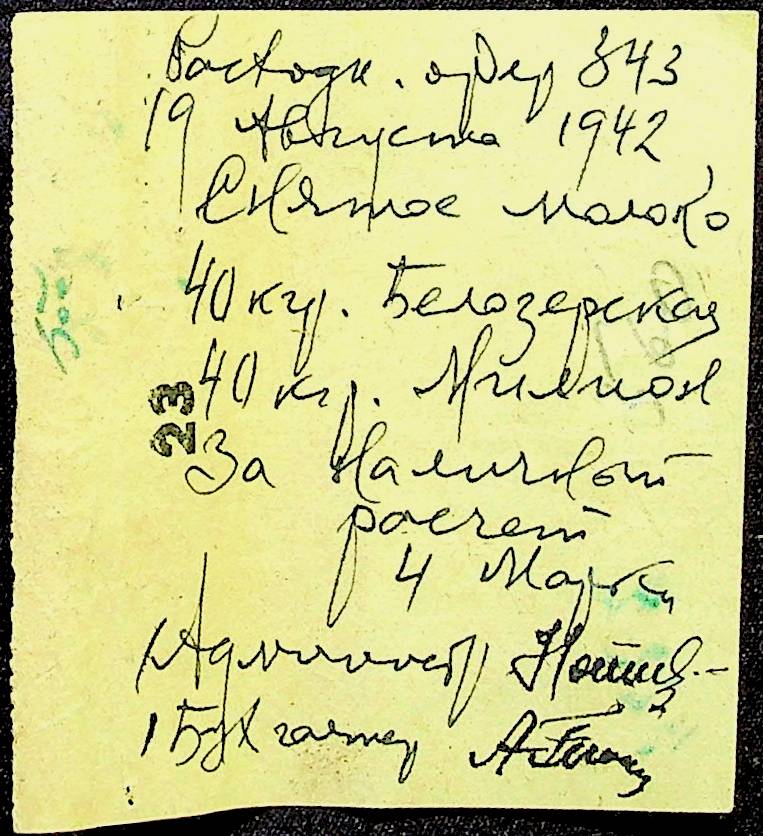 Расходн. ордер 343
19 Августа 1942
Снятое молоко
40 кгр. Белозерская
40 кгр. Милион
23
За Наличной
расчет
4 Марки
Администр
Бухгалтер